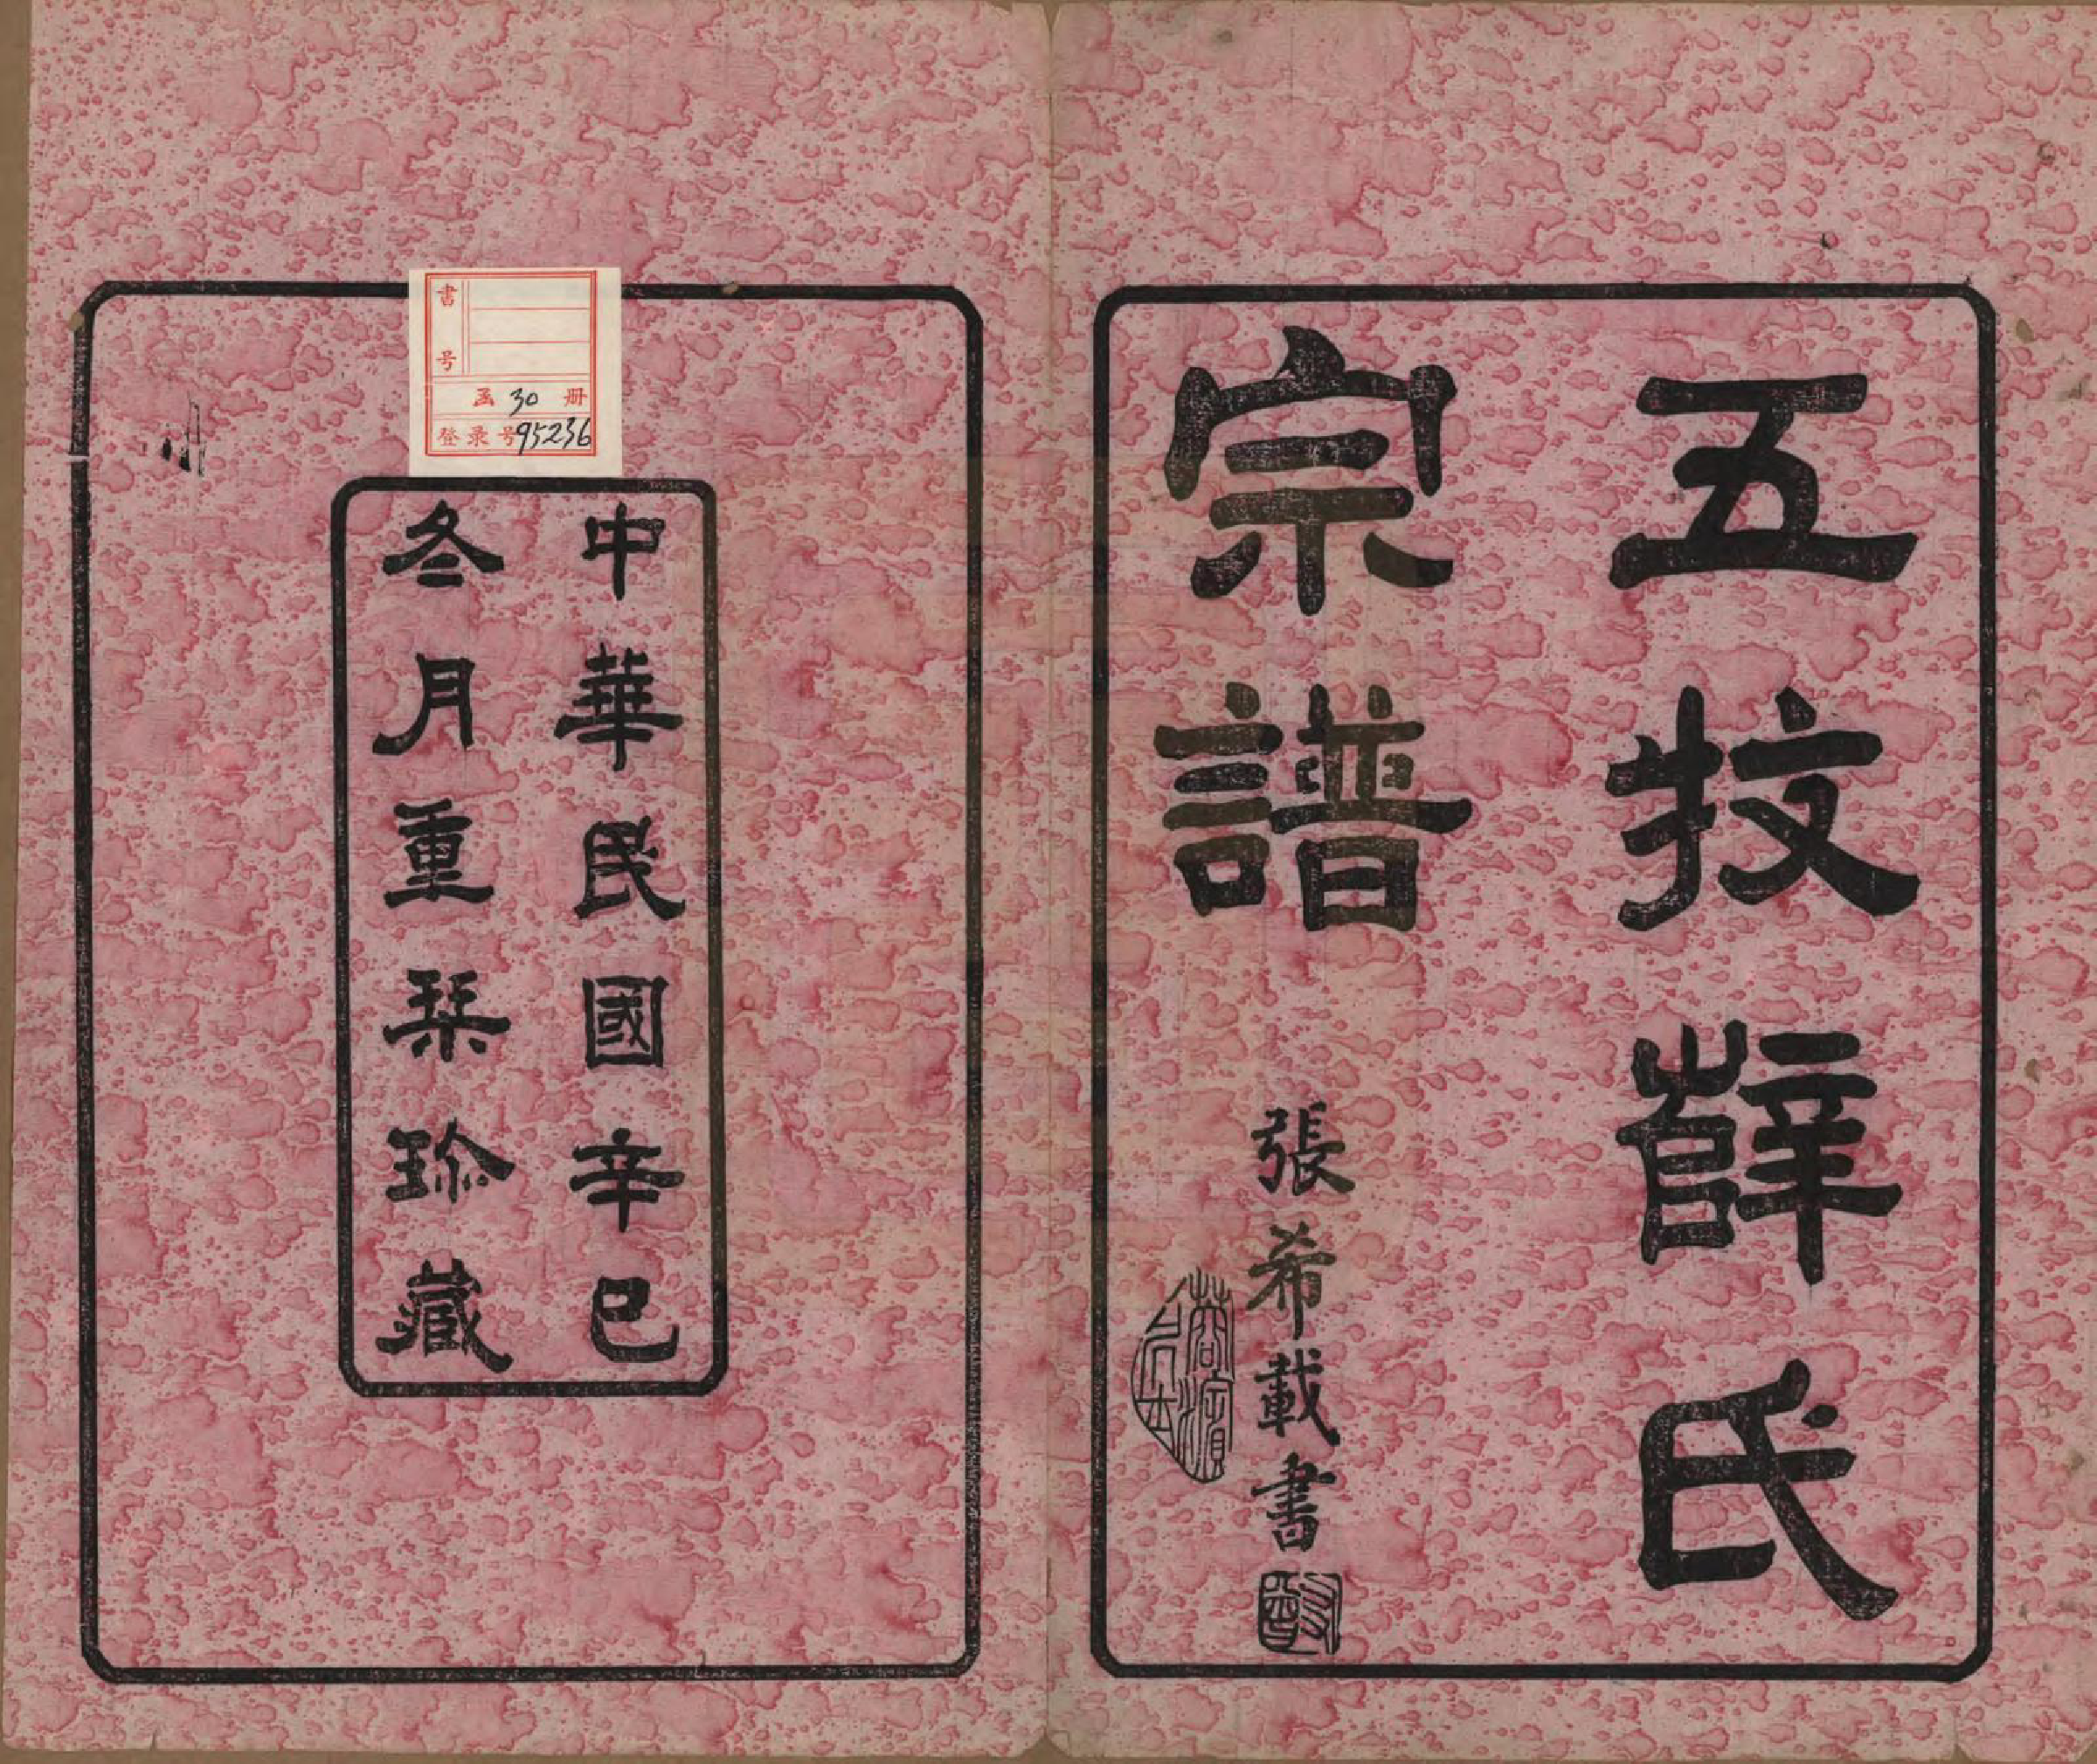 五牧薛氏
宗譜
張希載書
中華民國辛巳
冬月重琹珍藏
書号
函 30 册
登录号 95236